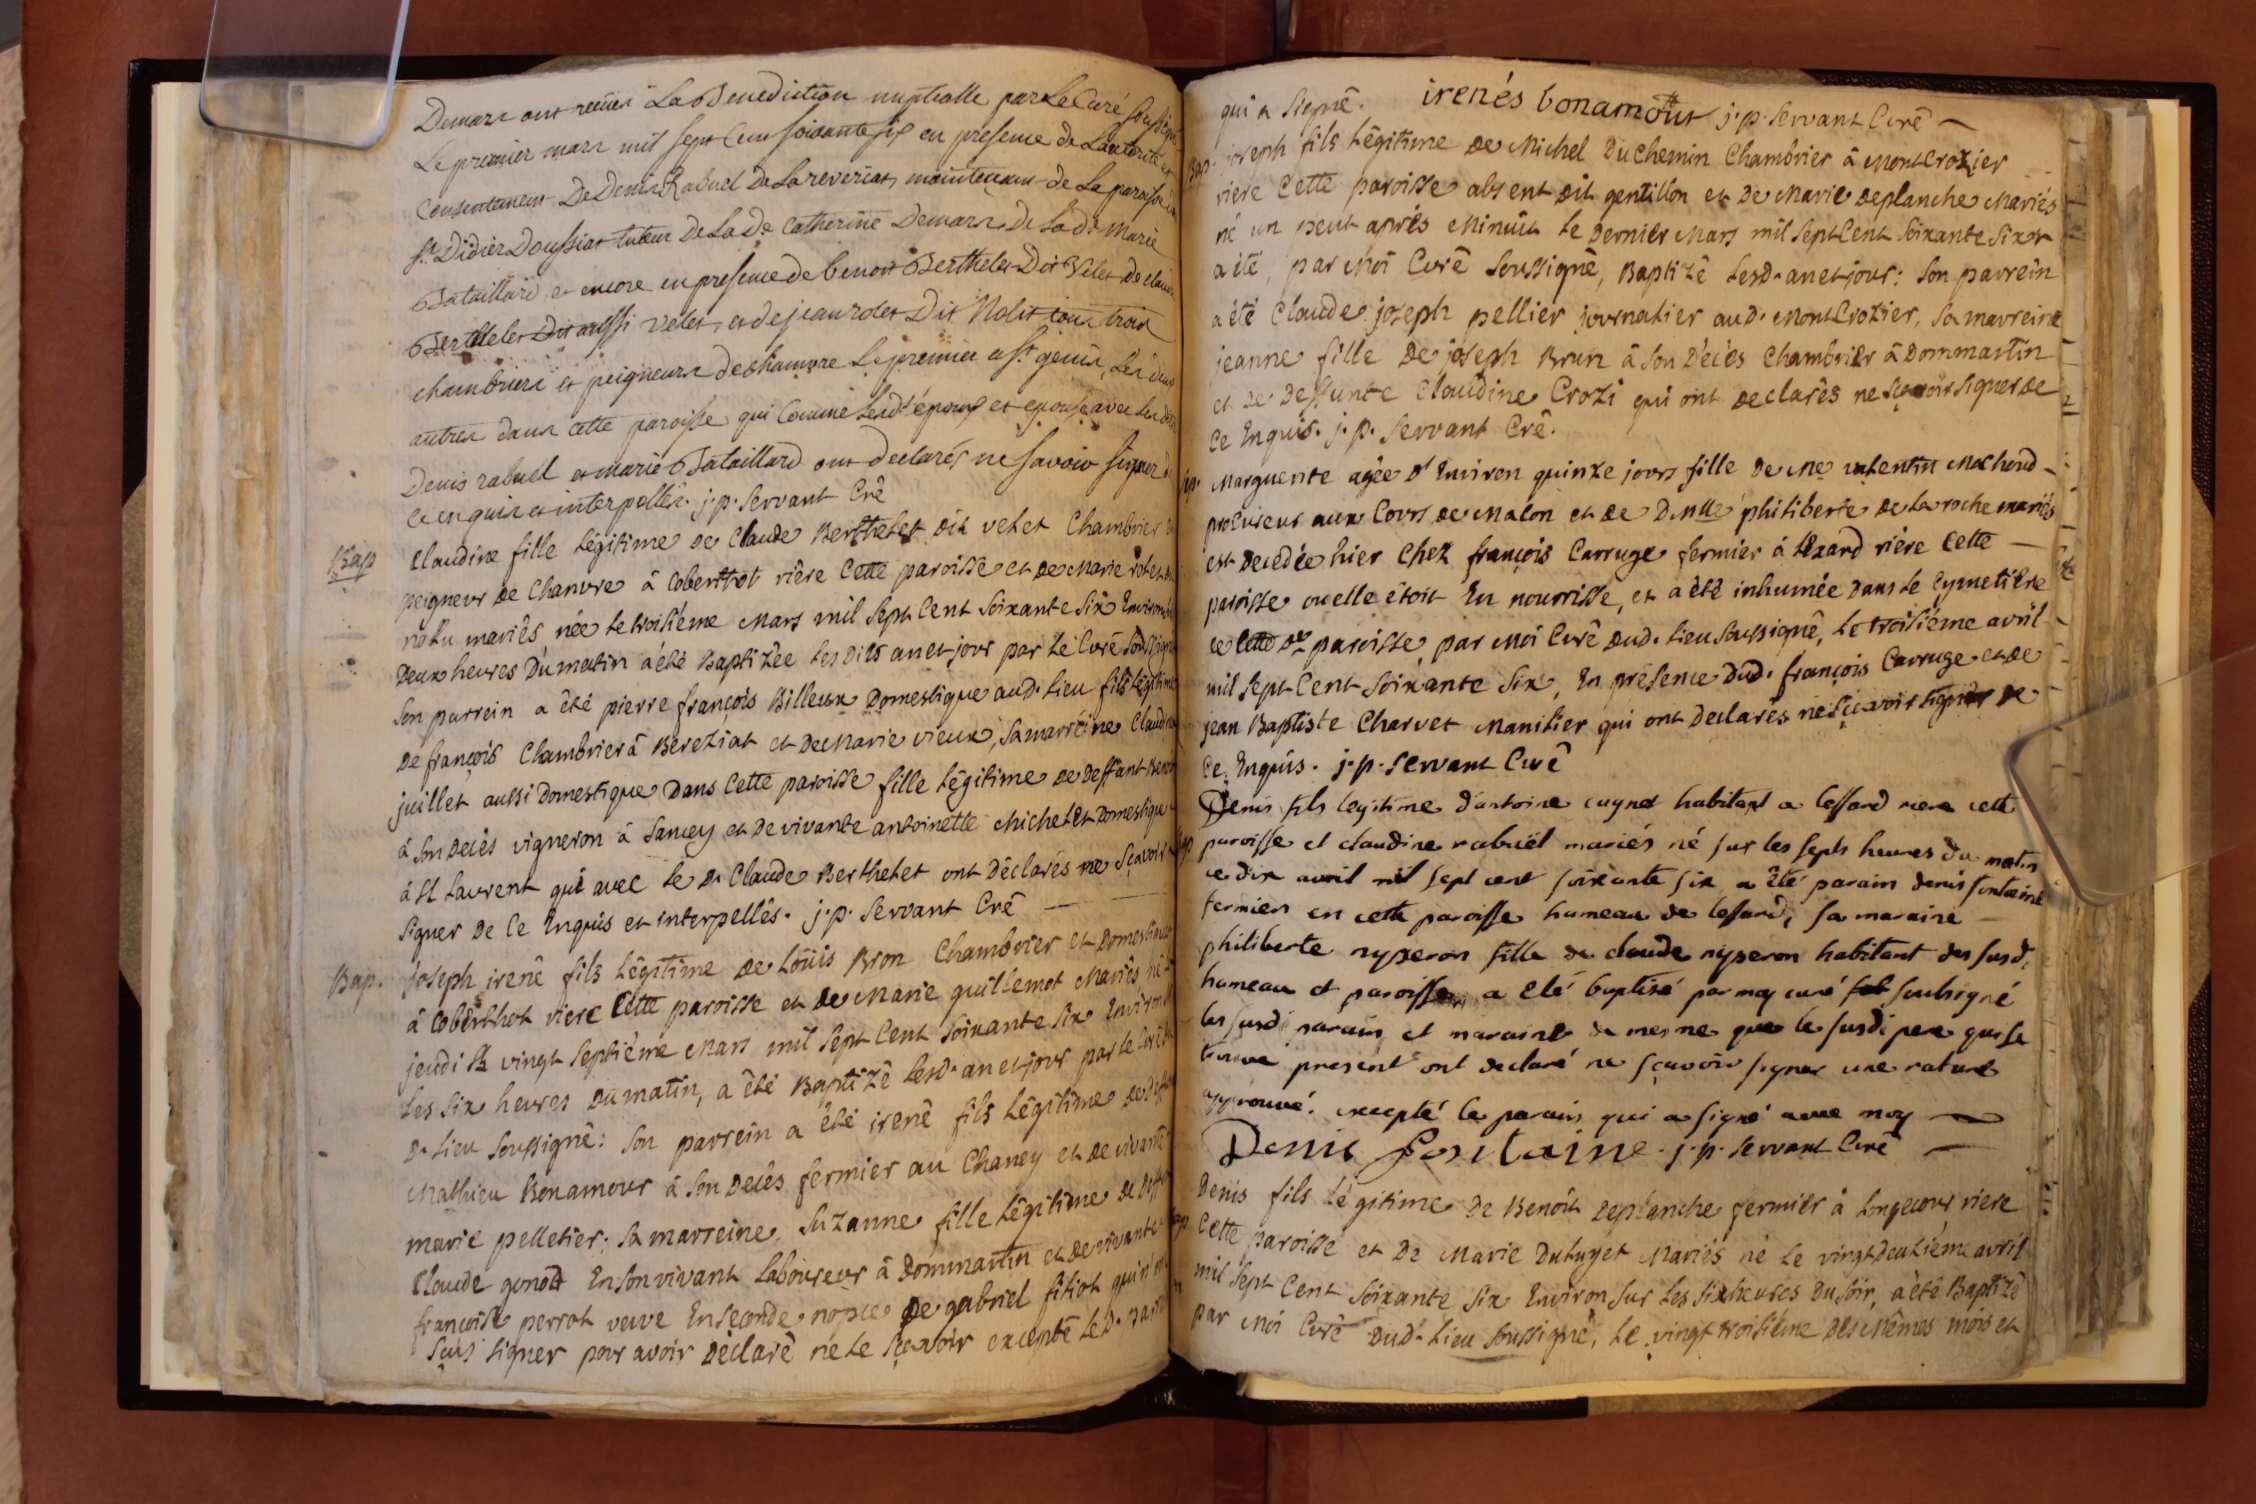 Demars ont recües La Benediction nuptialle par Le Curé soussigné
Le premier mars mil sept Cens soixante six en presence de Lautorité et
Consentement De Denis Rabuel De Lareveriat, maintenant de La paroisse
St. Didier Doussiat tuteur De La De Catherine Demars, De La de Marie
Bataillard et encore en presence de benoit Berthelet Dit Velet De
Berthelet Dit aussi Velet, et de jean rolet Dit Nolit tous trois
chambriers et peigneurs de chanvre Le premier a St genis, Les deux
autres dans cette paroisse qui Comme lesdts époux et epouse avec les dits
Denis rabuel et marie Bataillard ont declarés ne savoir signer de
ce enquis et interpellés. j. p. Servant Cré
Bap
Claudine fille Légitime de Claude Berthelet dit velet Chambrier et
peigneur de Chanvre â Coberthot rière Cette paroisse et de Marie rolet dit
mariés née le troisiéme Mars mil Sept Cent Soixante Six Environ les
Deux heures Du matin a été Baptizée les Dits an et jour par Le Curé Soussigné
Son parrein a été pierre françois Billeux Domestique aud. Lieu fils Légitime
De françois Chambrier â Bereziat et de Marie vieux, Sa marréine Claudine
juillet aussi Domestique Dans Cette paroisse fille Légitime de Deffunt Benoit
â Son Décès vigneron â Sancey et de vivante antoinette Michelet Domestique
â St Laurent qui avec le d. Claude Berthelet ont Déclarés ne Sçavoir
Signer De Ce Enquis et interpellés. j. p. Servant Cré
Bap.
joseph irené fils Légitime de Loüis Bron Chambrier et Domestique
â Coberthot riere Cette paroisse et de Marie guillemot Mariés, né
jeudi vingt Septiéme Mars mil Sept Cent Soixante Six Environ
Les Six heures Du matin, a été Baptizé Lesd. an et jour par le Curé
D. Lieu Soussigné: Son parrein a été irené fils Légitime de Deffunt
Mathieu Bonamour â Son Décès fermier au Chaney et de vivante
marie pelletier; Sa marreine, Suzanne fille Légitime de Deffunt
Claude gonod En Son vivant Laboureur â Dommartin et de vivante
françoise perrot veuve En Seconde nopce de gabriel fitiot qui n'ont
Signer pour avoir Déclaré ne Le Sçavoir excepté Led. parrein
qui a Signé. irenés bonamour j. p. Servant Curé
Bap.
joseph fils Légitime de Michel Du Chemin Chambrier â MontCrozier
riere Cette paroisse absent dit gentillon et de Marie Deplanche Mariés
né un peut aprés Minüit Le Dernier Mars mil Sept Cent Soixante Six
a été, par Moi Curé Soussigné, Baptizé Lesd. an et jour: Son parrein
a été Claude joseph pellier journalier aud. MontCrozier, Sa marreine
jeanne fille De joseph Brun â Son Décés Chambrier â Dommartin
et De Deffunte Claudine Crozi qui ont Declarés ne Sçavoir Signer De
Ce Enquis. j. p. Servant Cré.
Marguerite agée d'Environ quinze jours fille De Me valentin Mochond
procureur aux Cours de Macon et de D.Mlle philiberte De La roche mariés
est decedée hier Chez françois Carruge fermier á Lezard riére Cette
paroisse ou elle étoit En nourrisse, et a été inhumée Dans Le Cymetiére
de Cette de paroisse par Moi Curé Dud. Lieu Soussigné, Le troisiéme avril
mil Sept Cent Soixante Six, En présence Dud. françois Carruge et de
jean Baptiste Charvet Manilier qui ont Declarés ne Sçavoir Signer de
Ce Enquis. j. p. Servant Curé
Denis fils legitime d'antoine cugnet habitant a lessard riere cette
paroisse et claudine rabuël mariés né sur les septs heures du matin
ce dix avril mil sept cent soixante six a été parain denis fontaine
fermiers en cette paroisse hameau de lessard, sa maraine
philiberte nyseron fille de claude nyseron habitant des susd.
hameau et paroisse a été baptisé par moy curé soubsigné
les susdi parain et maraine de mesme que le susdi pere qui se
trouve present ont declaré ne sçavoir signer une rature
approuvé. excepté le parain qui a signé avec moy
Denis fontaine. j. p. Servant Curé
Denis fils Légitime De Benoît Deplanche fermier â Longecour riere
Cette paroisse et De Marie Duluyet Mariés né Le vingt deuxiéme avril
mil Sept Cent Soixante Six Environ Sur Les Six heures Du Soir, a été Baptizé
par Moi Curé Dud. Lieu Soussigné, Le vingt troisiéme Des Mêmes mois et